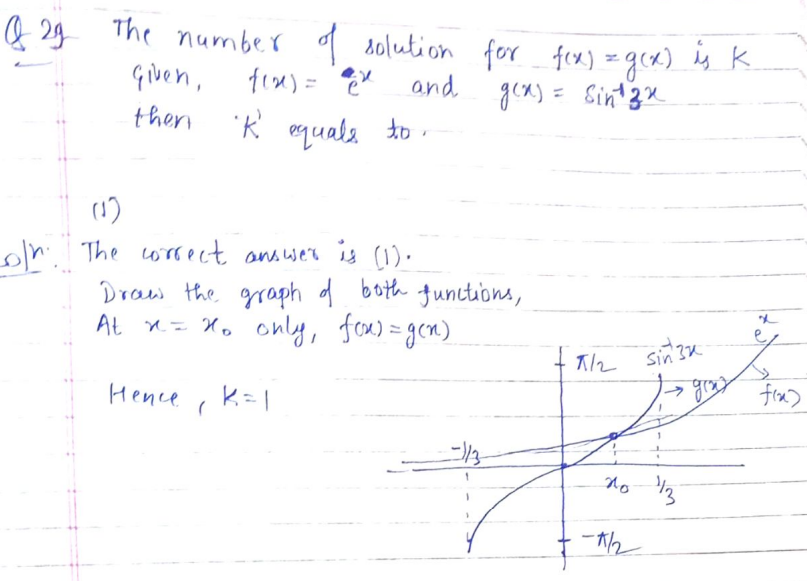 Q 29 The number of solution for f(x) = g(x) is K
Given, f(x) = e^x and g(x) = Sin⁻¹3x
then 'K' equals to.
(1)
Soln: The correct answer is (1).
Draw the graph of both functions,
At x = x₀ only, f(x) = g(x)
Hence, K=1
e^x
π/2 sin⁻¹3x
→ g(x) f(x)
-1/3
x₀ 1/3
-π/2